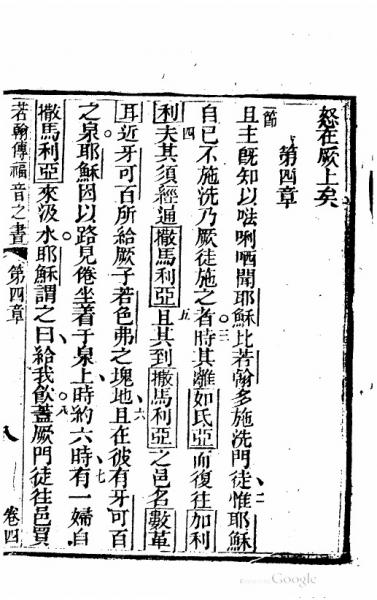 怒在厥上矣
第四章
一節 且主旣知以𠵽唎哂聞耶穌比若翰多施洗門徒二惟耶穌
自已不施洗乃厥徒施之者三時其離如氐亞而復往加利
利四夫其須經過撒馬利亞五且其到撒馬利亞之邑名數革
耳近牙可百所給厥子若色弗之塊地六且在彼有牙可百
之泉耶穌因以路見倦坐着于泉上時約六時七有一婦自
撒馬利亞來汲水耶穌謂之曰給我飲八蓋厥門徒往邑買
若翰傳福音之書 第四章 八 卷四
Google